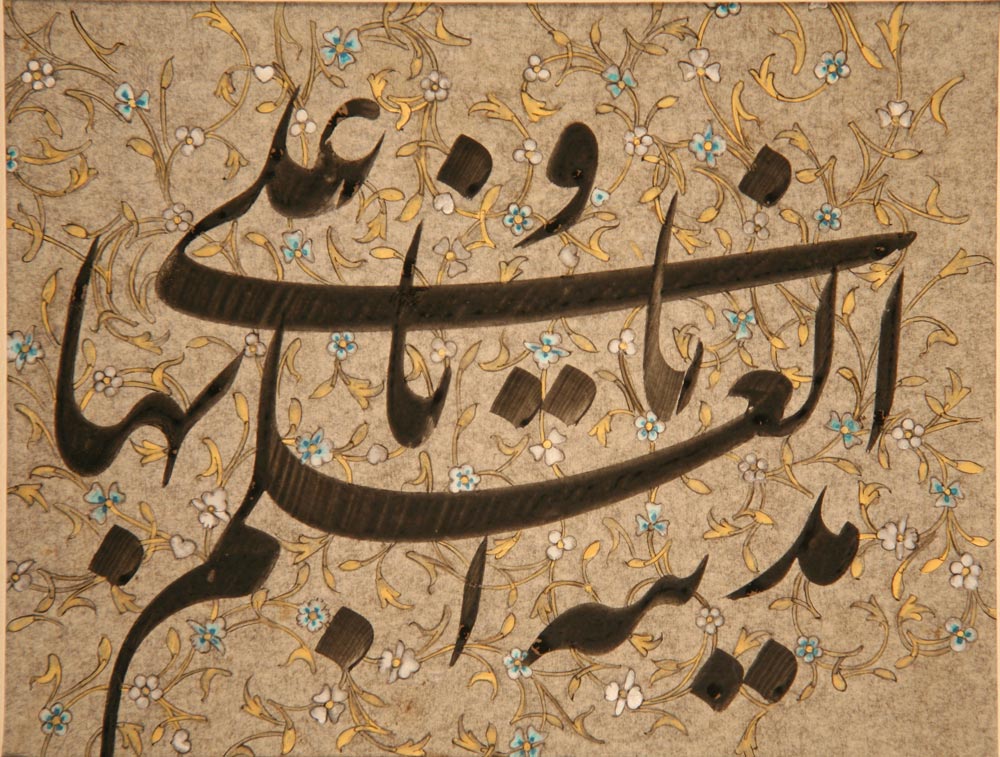 انا مدینه العلم و علی بابها